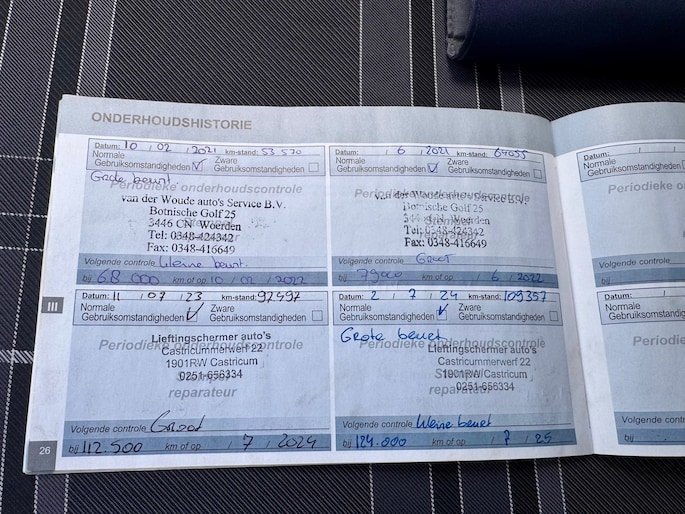 ONDERHOUDSHISTORIE
Datum: 10 / 02 / 2021 km-stand: 53 570
Normale Gebruiksomstandigheden Zware Gebruiksomstandigheden
Grote beurt
Periodieke onderhoudscontrole
van der Woude auto's Service B.V.
Botnische Golf 25
3446 CN Woerden
Tel: 0348-424342
Fax: 0348-416649
Volgende controle kleine beurt.
bij 68 000 km of op 10 / 02 / 2022
Datum: / 6 / 2021 km-stand: 64055
Normale Gebruiksomstandigheden Zware Gebruiksomstandigheden
Periodieke onderhoudscontrole
van der Woude auto's Service B.V.
Botnische Golf 25
3446 CN Woerden
Tel: 0348-424342
Fax: 0348-416649
Volgende controle Groot
bij 79000 km of op / 6 / 2022
III
Datum: 11 / 07 / 23 km-stand: 97497
Normale Gebruiksomstandigheden Zware Gebruiksomstandigheden
Lieftingschermer auto's
Periodieke onderhoudscontrole
Castricummerwerf 22
1901RW Castricum
Stempel
0251-656334
reparateur
Volgende controle Groot
bij 112.500 km of op / 7 / 2024
Datum: 2 / 7 / 24 km-stand: 109357
Normale Gebruiksomstandigheden Zware Gebruiksomstandigheden
Grote beurt
Periodieke onderhoudscontrole
Lieftingschermer auto's
Castricummerwerf 22
1901RW Castricum
0251-656334
Volgende controle kleine beurt
bij 124.000 km of op / 7 / 25
26
Datum:
Normale
Gebruiksomstandigheden
Periodieke
Volgende controle
bij
Datum:
Normale
Gebruiksomstandigheden
Period
Volgende contr
bij